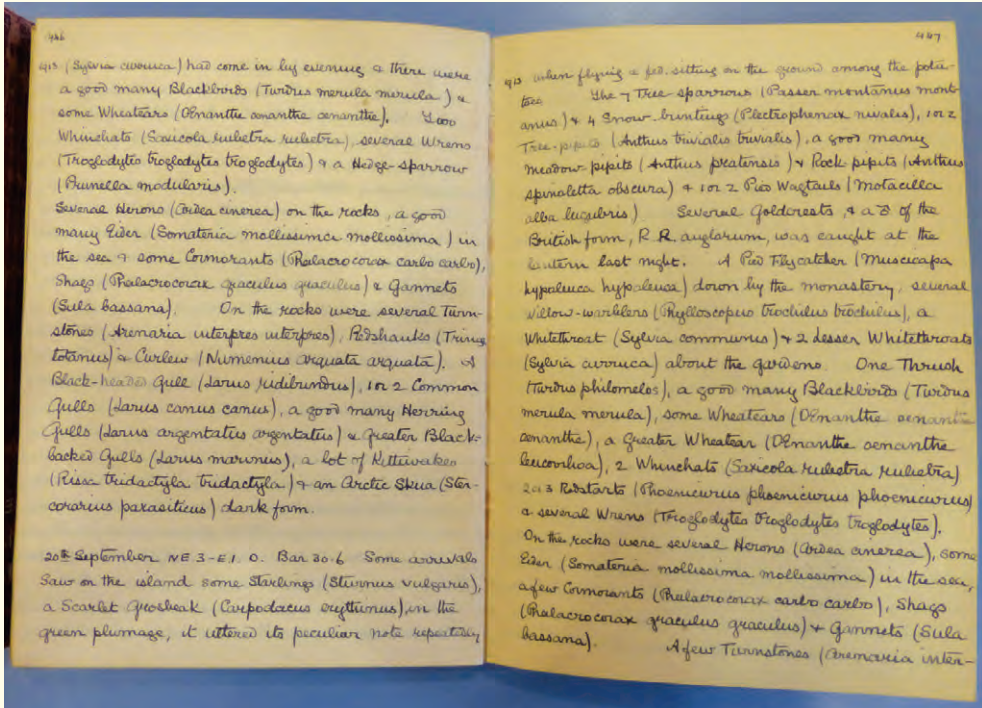 446
1913 (Sylvia curruca) had come in by evening & there were
a good many Blackbirds (Turdus merula merula) &
some Wheatears (Œnanthe œnanthe œnanthe). Two
Whinchats (Saxicola rubetra rubetra), several Wrens
(Troglodytes troglodytes troglodytes) & a Hedge-sparrow
(Prunella modularis).
Several Herons (Ardea cinerea) on the rocks, a good
many Eider (Somateria mollissima mollissima) in
the sea & some Cormorants (Phalacrocorax carbo carbo),
Shags (Phalacrocorax graculus graculus) & Gannets
(Sula bassana). On the rocks were several Turn-
stones (Arenaria interpres interpres), Redshanks (Tringa
totanus) & Curlew (Numenius arquata arquata). A
Black-headed Gull (Larus ridibundus), 1 or 2 Common
Gulls (Larus canus canus), a good many Herring
Gulls (Larus argentatus argentatus) & Greater Black-
backed Gulls (Larus marinus), a lot of Kittiwakes
(Rissa tridactyla tridactyla) & an Arctic Skua (Ster-
corarius parasiticus) dark form.
20th September NE 3-E 1. 0. Bar 30.6 Some arrivals
Saw on the island some Starlings (Sturnus vulgaris),
a Scarlet Grosbeak (Carpodacus erythrinus), in the
green plumage, it uttered its peculiar note repeatedly
447
1913 when flying & fed, sitting on the ground among the pota-
toes. The 7 Tree sparrows (Passer montanus mont-
anus) & 4 Snow-buntings (Plectrophenax nivalis), 1 or 2
Tree-pipits (Anthus trivialis trivialis), a good many
meadow-pipits (Anthus pratensis) & Rock pipits (Anthus
spinoletta obscura) & 1 or 2 Pied Wagtails (Motacilla
alba lugubris) Several Goldcrests, & a ♂ of the
British form, R. R. anglorum, was caught at the
lantern last night. A Pied Flycatcher (Muscicapa
hypoleuca hypoleuca) down by the monastery, several
Willow-warblers (Phylloscopus trochilus trochilus), a
Whitethroat (Sylvia communis) & 2 Lesser Whitethroats
(Sylvia curruca) about the gardens. One Thrush
(Turdus philomelos), a good many Blackbirds (Turdus
merula merula), some Wheatears (Œnanthe œnanthe
œnanthe), a Greater Wheatear (Œnanthe œnanthe
leucorrhoa), 2 Whinchats (Saxicola rubetra rubetra)
2 or 3 Redstarts (Phoenicurus phoenicurus phoenicurus)
& several Wrens (Troglodytes troglodytes troglodytes).
On the rocks were several Herons (Ardea cinerea), some
Eider (Somateria mollissima mollissima) in the sea,
a few Cormorants (Phalacrocorax carbo carbo), Shags
(Phalacrocorax graculus graculus) & Gannets (Sula
bassana). A few Turnstones (Arenaria inter-